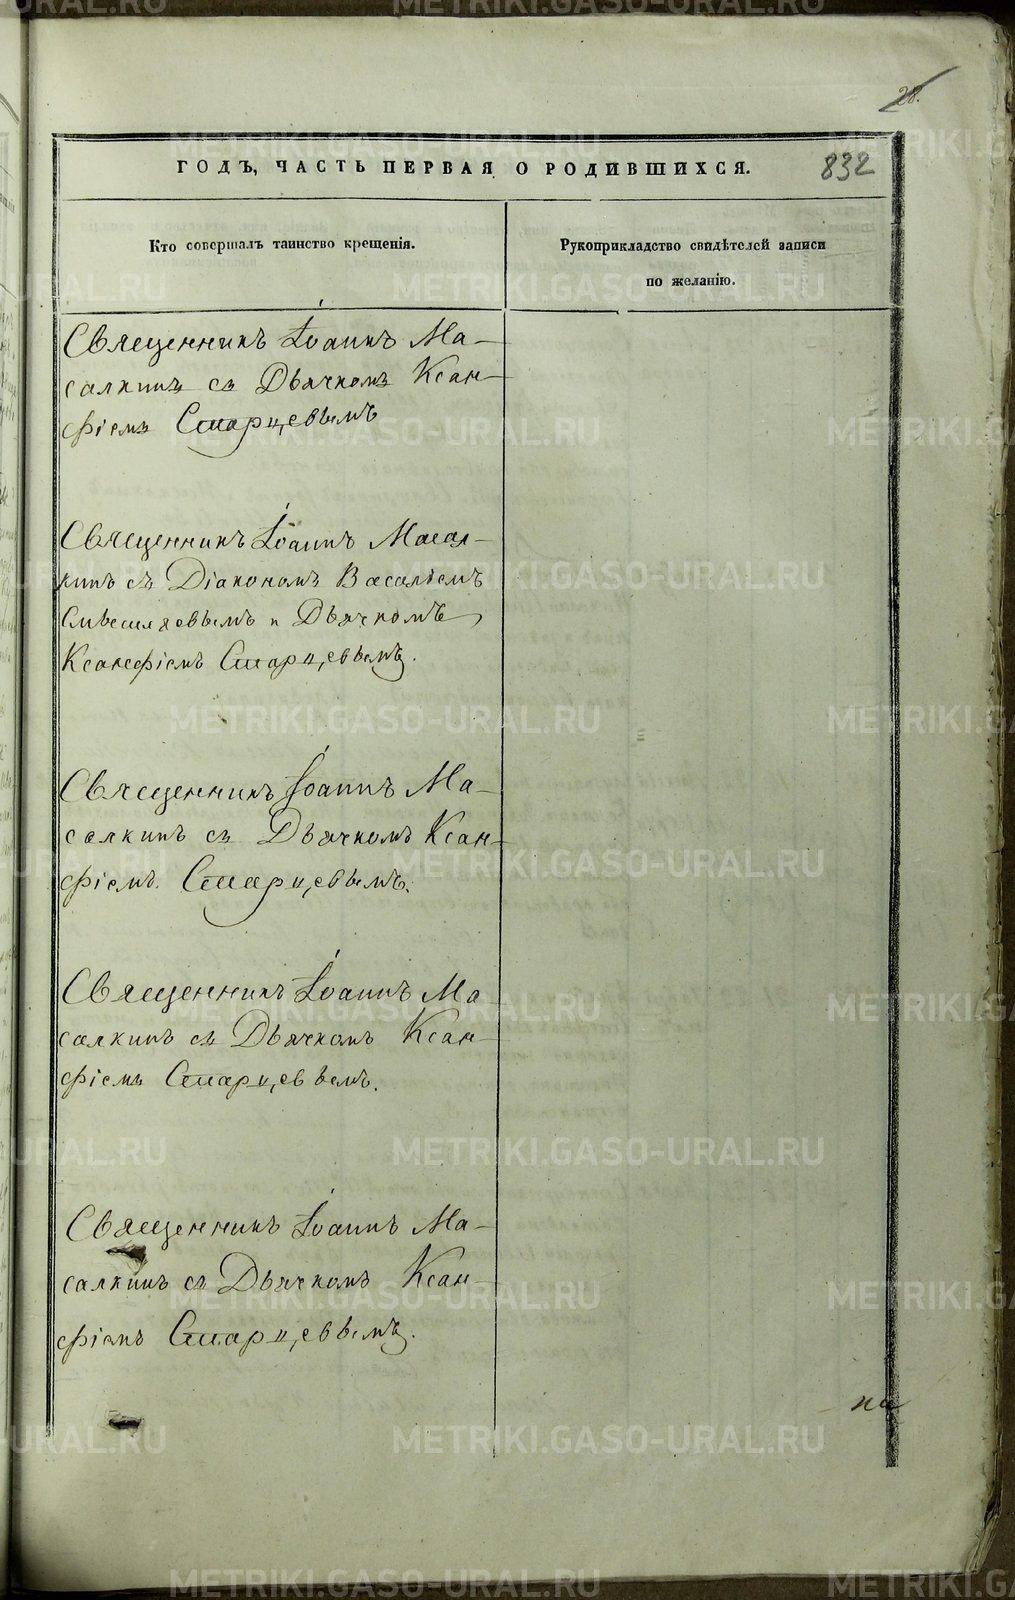 28.
ГОДЪ, ЧАСТЬ ПЕРВАЯ О РОДИВШИХСЯ. 832
Кто совершалъ таинство крещенія.
Рукоприкладство свидѣтелей записи
по желанію.
Священникъ Іоаннъ Ма-
салкинъ съ Дьячкомъ Ксан-
фіемъ Старцевымъ
Священникъ Іоаннъ Масал-
кинъ съ Діакономъ Васильемъ
и Дьячкомъ
Ксанфіемъ Старцевымъ.
Священникъ Іоаннъ Ма-
салкинъ съ Дьячкомъ Ксан-
фіемъ Старцевымъ.
Священникъ Іоаннъ Ма
салкинъ съ Дьячкомъ Ксан-
фіемъ Старцевымъ.
Священникъ Іоаннъ Ма-
салкинъ съ Дьячкомъ Ксан-
фіемъ Старцевымъ.
METRIKI.GASO-URAL.RU